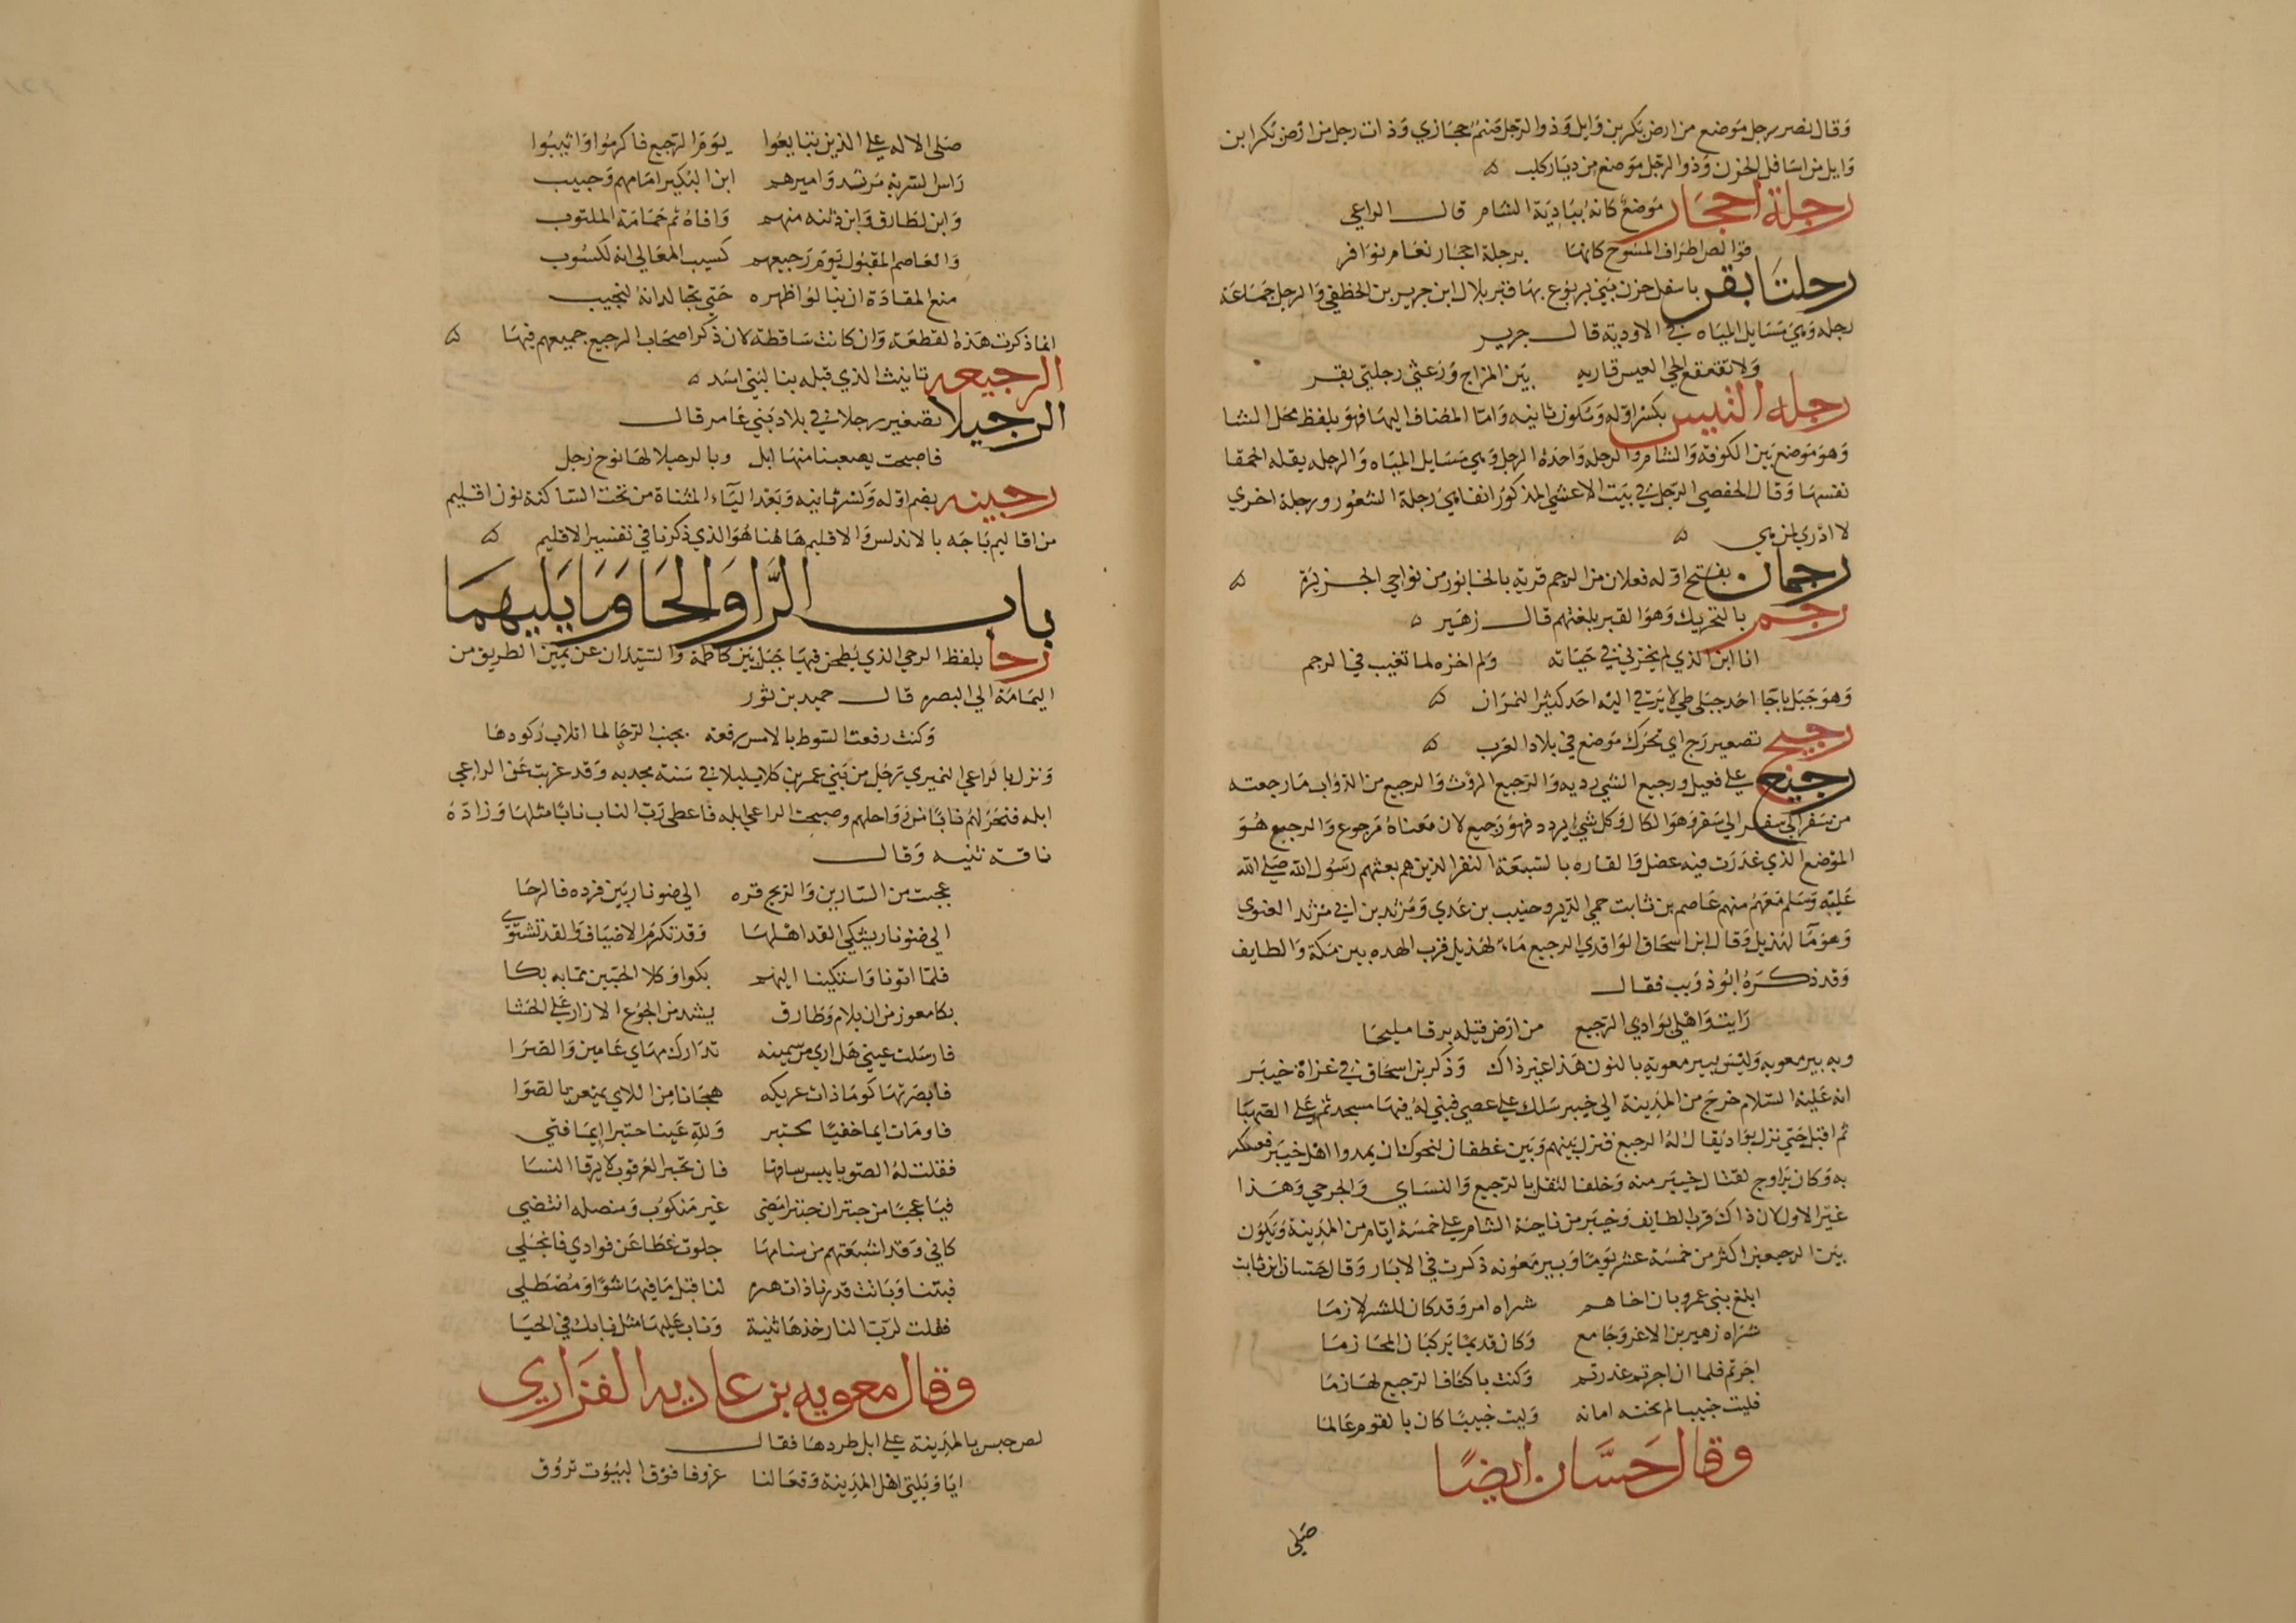 وقال نصر رجل موضع من ارض بكر بن وايل وذو الرجل صنم حجازي وذات رجل من ارض بكر ابن
وايل من اسافل الحزن وذو الرجل موضع من ديار كلب ه
رجلة احجار موضع كانه ببادية الشام قال الراعي
قوالص اطراف المسوح كانها برجلة احجار نعام نوافر
رجلتا بقر باسفل حزن بني يربوع بها قبر بلال ابن جرير بن الخطفي والرجل جماعة
رجله وهي مسايل المياه في الاودية قال جرير
ولا تقعقع الحي العيس قاربه بين المزاج ورعثي رجلتي بقر
رجله التيس بكسر اوله وسكون ثانيه واما المضاف اليها فهو بلفظ فحل الشا
وهو موضع بين الكوفة والشام والرجله واحدة الرجل وهي مسايل المياه والرجله بقله الحمقا
نفسها وقال الحفصي الرجل في بيت الاعشي المذكور انفا هي رجلة الشعور ورجلة اخري
لا ادري لمن هي ه
رجمان بفتح اوله فعلان من الرجم قرية بالخابور من نواحي الجزيرة ه
رجم بالتحريك وهو القبر بلغتهم قال زهير ه
انا ابن الذي لم يخزني في حياته ولم اخزه لما تغيب في الرجم
وهو جبل باجا احد جبلي طي لا يرقي اليه احد كثير النمران ه
رجيج تصغير رج اي تحرك موضع في بلاد العرب ه
رجيع علي فعيل ورجيع الشي رديه والرجيع الروث والرجيع من الدواب ما رجعته
من سفر الي سفر وهو الكال وكل شي يردد فهو رجيع لان معناه مرجوع والرجيع هو
الموضع الذي غدرت فيه عضل والقاره بالسبعة النفر الذين هم بعثهم رسول الله صلي الله
عليه وسلم معهم منهم عاصم بن ثابت حمي الدبر وخبيب بن عدي ومرثد بن ابي مرثد الغنوي
وهو ما لهذيل وقال ابن اسحاق الواقدي الرجيع ماء لهذيل قرب الهده بين مكة والطايف
وقد ذكره ابو ذويب فقال
رايت واهلي بوادي الرجيع من ارض قيله برقا مليحا
وبه بير معويه وليس ببير معوية بالنون هذا غير ذاك وذكر بن اسحاق في غزاة خيبر
انه عليه السلام خرج من المدينة الي خيبر سلك علي عصي فبني له فيها مسجد ثم علي الصهبا
ثم اقبل حتي نزل بواد يقال له الرجيع فنزل بينهم وبين غطفان ليحول ان يمدوا اهل خيبر فعسكر
به وكان يراوح لقتال خيبر منه وخلف الثقل بالرجيع والنساي والجرحي وهذا
غير الاول لان ذاك قرب الطايف وخيبر من ناحية الشام علي خمسة ايام من المدينة ويكون
بين الرجيعين اكثر من خمسة عشر يوما وبير معونه ذكرت في الابار وقال حسان بن ثابت
ابلغ بني عمرو بان اخاهم شراه امرو قد كان للشر لازما
شراه زهير بن الاغر وجامع وكان قديما يركبان المحارما
اجرتم فلما ان اجرتم غدرتم وكنت باكناف الرجيع لهازما
فليت خبيبا لم تخنه امانه وليت خبيبا كان بالقوم عالما
وقال حسان ايضا
صلي
صلي الاله علي الذين تتابعوا يوم الرجيع فاكرموا واثيبوا
راس السرية مرثد واميرهم ابن البكير امامهم وخبيب
وابن لطارق وابن دثنه منهم وافاه ثم حمامة المكتوب
والعاصم المقبول يوم رجيعهم كسب المعالي انه لكسوب
منع المقادة ان ينالوا ظهره حتي يجالد انه لنجيب
انما ذكرت هذه القطعة وان كانت ساقطة لان ذكر اصحاب الرجيع جميعهم فيها ه
الرجيعه تانيث الذي قبله بنا لبني اسد ه
الرجيلا تصغير رجلا في بلاد بني عامر قال
فاصبحت بصعنبا منها ابل وبالرجيلا لها نوح زجل
رجينه بضم اوله وكسر ثانيه وبعد الياء المثناة من تحت الساكنة نون اقليم
من اقاليم باجه بالاندلس والاقليم هاهنا هو الذي ذكرنا في تفسير الاقليم ه
باب الرا والحا وما يليهما
رحا بلفظ الرحي الذي يطحن فيها جبل بين كاظمة والسيدان عن يمين الطريق من
اليمامة الي البصره قال حميد بن ثور
وكنت رفعت السوط بالامس رفعه بجنب الرحا لما اتلاب ركودها
ونزل بالراعي النميري رجل من بني عمر بن كلاب ليلا في سنة مجدبه وقد عزبت عن الراعي
ابله فنحر لهم نابا من رواحلهم وصبحت الراعي ابله فاعطي رب الناب نابا مثلها وزاده
ناقة ثنيه وقال
عجبت من السارين والريح قره الي ضو نار بين فرده فالرحا
الي ضو نار يشتكي القد اهلها وقد تكرم الاضياف والقد تشتوي
فلما اتونا واشتكينا اليهم بكوا وكلا الحيين مما به بكا
بكا معوز من ان يلام وطارق يشد من الجوع الازار علي الحشا
فارسلت عيني هل اري من سمينه تدارك فيها ني عامين والصرا
فابصرتها كوما ذات عريكه هجانا من اللاي تمتعن بالصوا
فاومات ايما خفيا لحبتر ولله عينا حبتر ايما فتي
فقلت له الصق بايبس ساقها فان تجبر العرقوب لا يرقا النسا
فيا عجبا من حبتر ان حبترا مضي غير منكوب ومنصله انتضي
كاني وقد اشبعتهم من سنامها جلوت غطا عن فوادي فانجلي
فبتنا وباتت قدرنا ذات هزه لنا قبل ما فيها شوا ومصطلي
فقلت لرب الناب خذها ثنية وناب عليها مثل نابك في الحيا
وقال معويه بن عاديه الفزاري
لص حبس بالمدينة علي ابل طردها فقال
ايا ويلتي اهل المدينة رفعا لنا غرفا فوق البيوت تروق